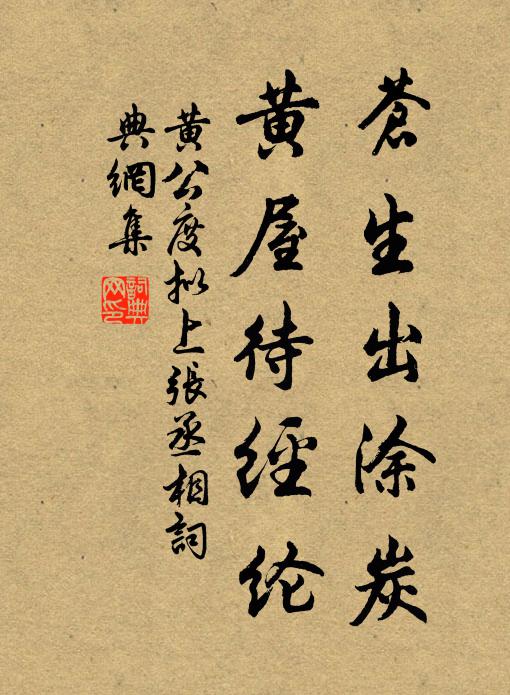 蒼生出涂炭
黃屋待經纶
黃公度拟上張丞相詞
典網集
詞典网印